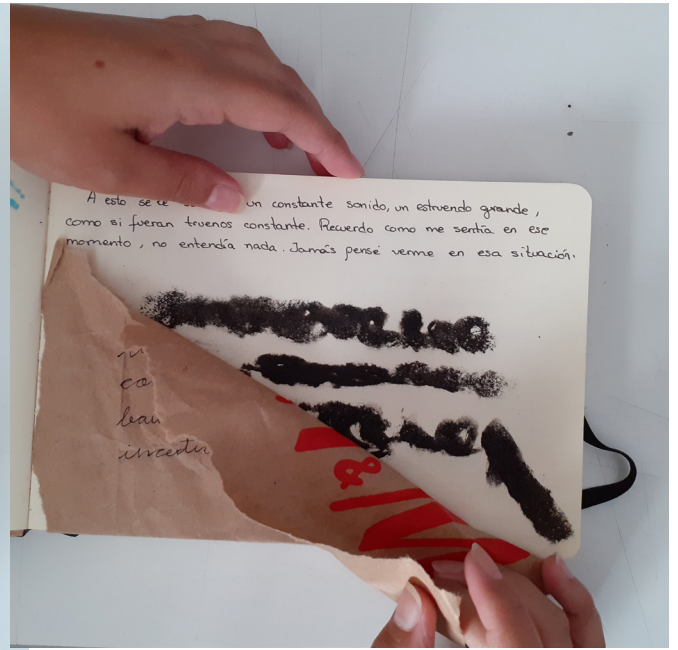 A esto se un constante sonido, un estruendo grande,
como si fueran truenos constante. Recuerdo como me sentía en ese
momento, no entendía nada. Jamás pensé verme en esa situación.
co
&